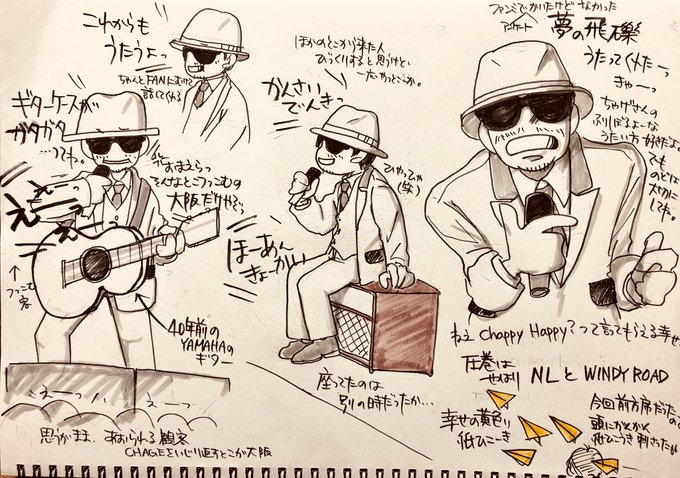 これからも
うたうよっ
ちゃんとFANにむけて
話してくれる
ギターケースが
ガタガタ
…ってね。
えーっ
えーっ
おまえらっ
そんなとこつっこむの
大阪だけやぞっ
↑
つっこむ
客
40年前の
YAMAHAの
ギター
えーっ
えーっ
思うがまま、あおられる観客
CHAGEをいじり返すとこが大阪
ほかのとこから来た人
びっくりすると思うけど
かんさい
でんきっ
ひゃっひゃ
(笑)
ほーあん
きょーかいっ
座ってたのは
別の時だったか…
アンケート
夢の飛礫
うたってくれたーっ
きゃーっ
ちゃげさんの
ふりしぼるよーな
うたい方好きだよ
でも
のどは
大切に
してね。
ねぇ Chappy Happy?って言ってもらえる幸せ
圧巻は
やはり NLと WINDY ROAD
幸せの黄色い
紙ひこーき
今回前方席だったの
頭にガンガン
紙ひこうき刺さったよ